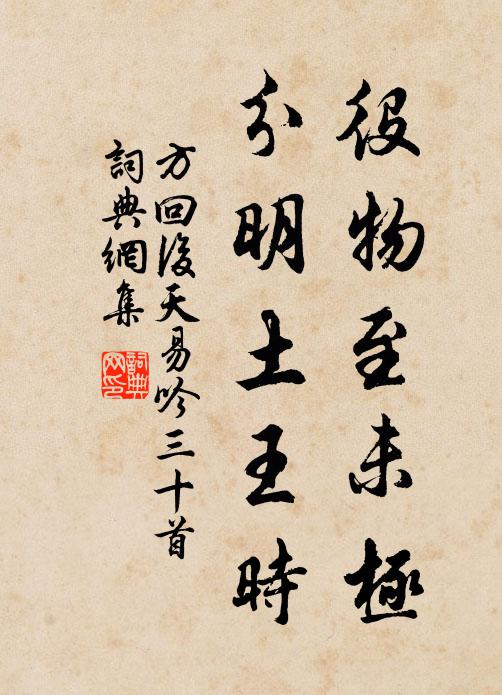 役物至未極
分明土王時
方回後天易吟三十首
詞典網集
詞典网印